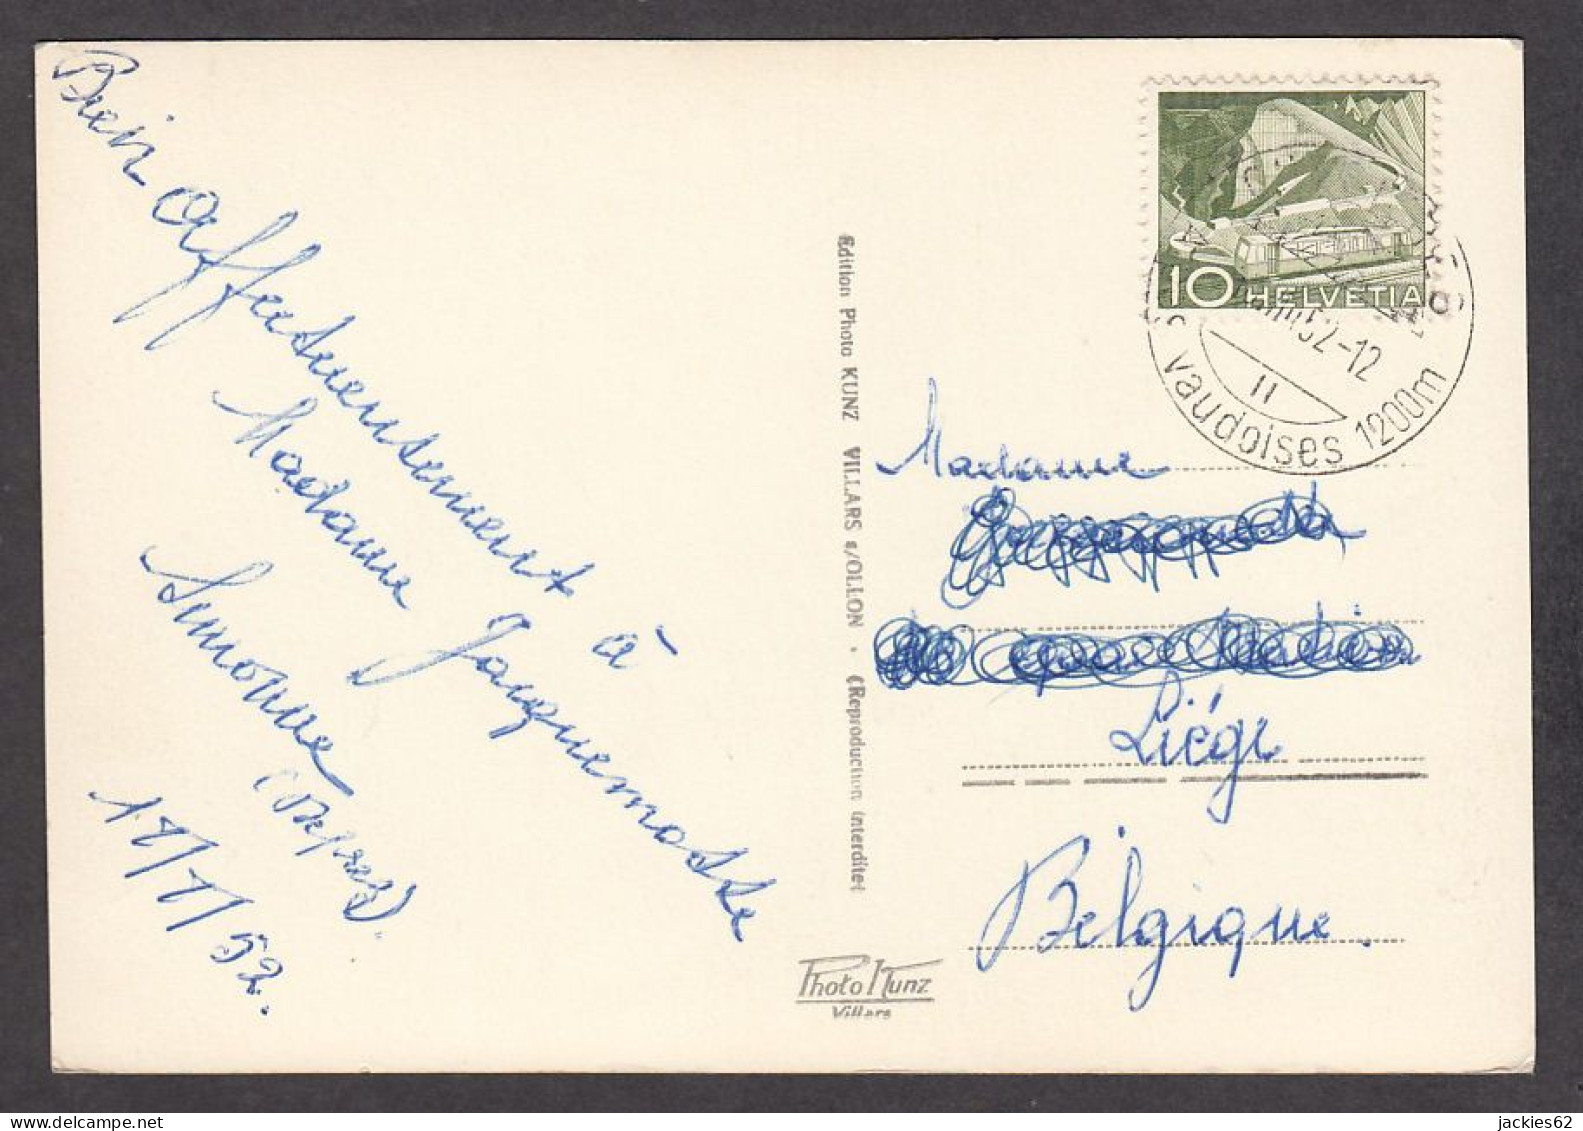 Bien affectueusement à
Madame Jacquemotte
Simonne
(Depred)
17/7/52.
Edition Photo KUNZ VILLARS s/OLLON • (Reproduction interdite)
Photo Kunz
Villars
10 HELVETIA
52-12
II
vaudoises 1200m
Madame
Liége
Belgique.
jackies62